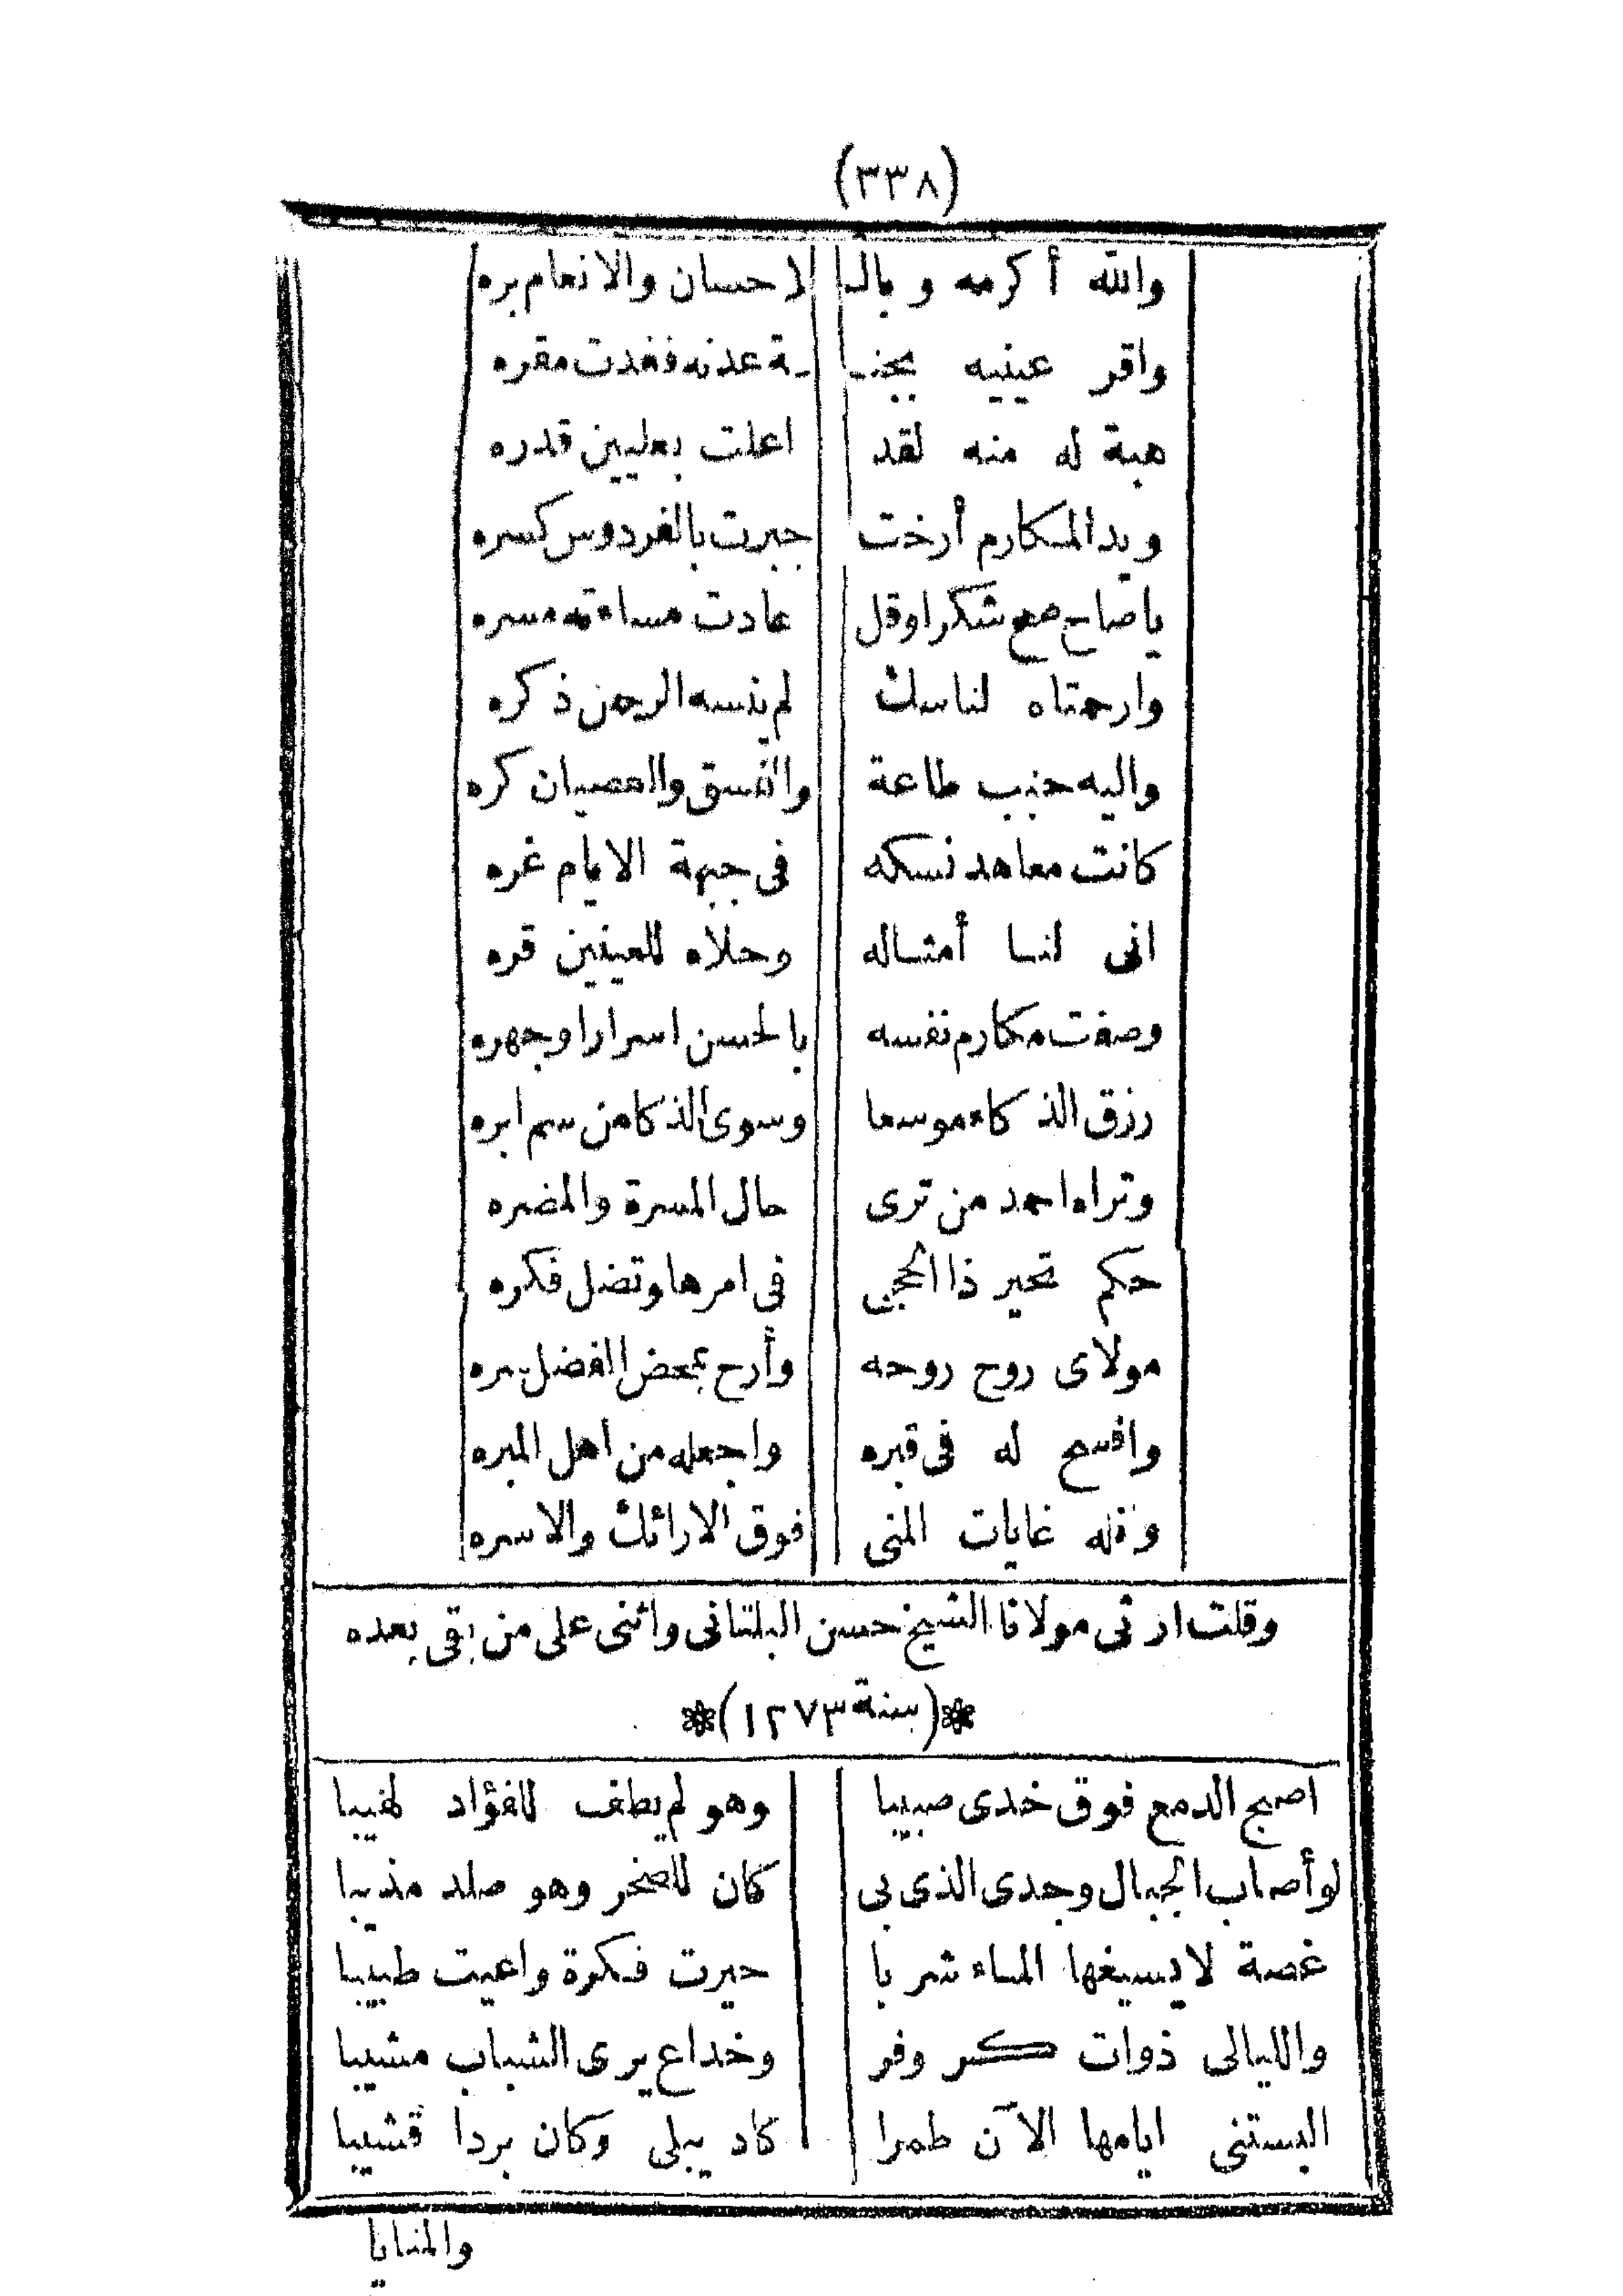 (٣٣٨)
والله أكرمه وبالـ لاحسان والانعام بره
واقر عينيه بجنـ ـة عدنه فغدت مقره
هبة له منه لقد اعلت بعليين قدره
ويد المكارم أرخت جبرت بالفردوس كسره
ياصاح صح شكرا وقل عادت مساءته مسره
وارحمتاه لناسك لم ينسه الرحمن ذكره
واليه حبب طاعة والفسق والعصيان كره
كانت معاهد نسكه فى جبهة الايام غره
انى لنا أمثاله وحلاه للعينين قره
وصفت مكارم نفسه بالحسن اسرارا وجهره
رزق الذكاء موسعا وسوى الذكا من سم ابره
وتراه احمد من ترى حال المسرة والمضره
حكم تحير ذا الحجى فى امرها وتضل فكره
مولاى روح روحه وأرح بمحض الفضل سره
وافسح له فى قبره واجعله من اهل المبره
ونله غايات المنى فوق الارائك والاسره
وقلت ارثى مولانا الشيخ حسن البلتانى واثنى على من بقى بعده
*(سنة ١٢٧٣)*
اصبح الدمع فوق خدى صبيبا وهو لم يطف للفؤاد لهيبا
لو أصاب الجبال وجدى الذى بى كان للصخر وهو صلد مذيبا
غصة لا يسيغها الماء شربا حيرت فكرة واعيت طبيبا
والليالى ذوات كر وفر وخداع يرى الشباب مشيبا
البستنى ايامها الآن طمرا كاد يبلى وكان بردا قشيبا
والمنايا